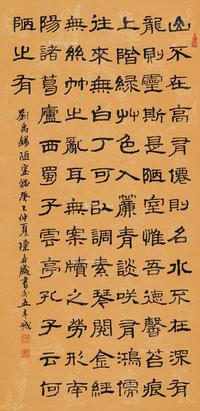 山不在高有僊則名水不在深有
龍則靈斯是陋室惟吾德馨苔痕
上階綠艸色入簾青談笑有鴻儒
往來無白丁可以調素琴閱金經
無絲竹之亂耳無案牘之勞形南
陽諸葛廬西蜀子雲亭孔子云何
陋之有
劉禹錫陋室銘癸巳仲夏陳書於五羊城